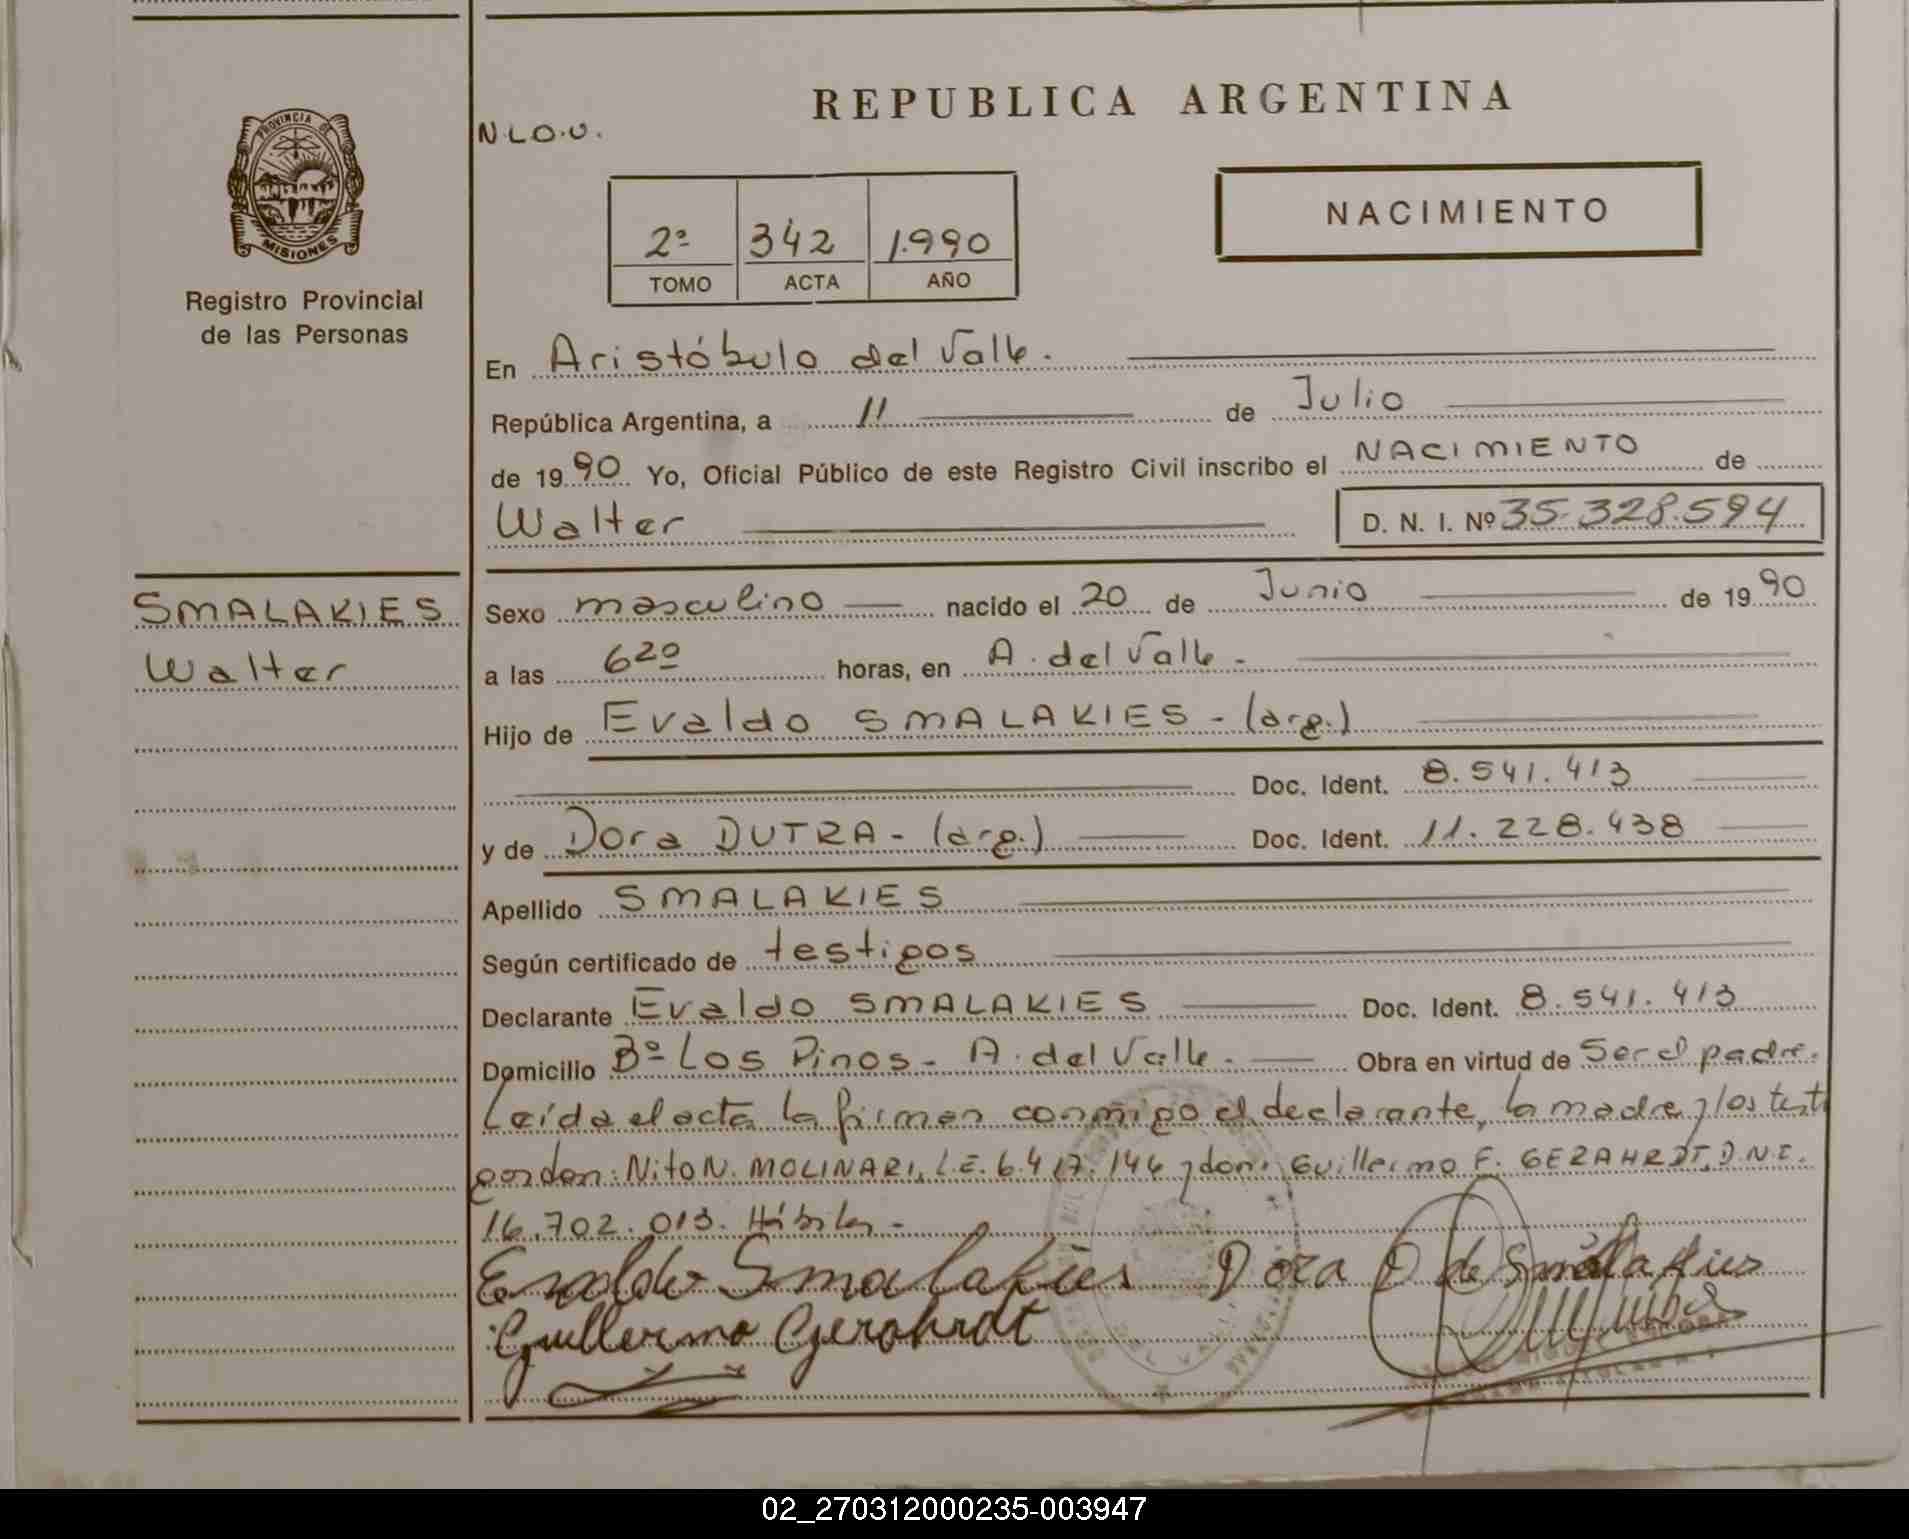 REPUBLICA ARGENTINA
N.L.O.U.
PROVINCIA DE
MISIONES
Registro Provincial
de las Personas
2º 342 1.990
TOMO ACTA AÑO
NACIMIENTO
En Aristóbulo del Valle.
República Argentina, a 11 de Julio
de 1990 Yo, Oficial Público de este Registro Civil inscribo el NACIMIENTO de
Walter D. N. I. Nº 35.328.594
SMALAKIES
Walter
Sexo masculino nacido el 20 de Junio de 1990
a las 6 20 horas, en A. del Valle -
Hijo de Evaldo SMALAKIES - (arg.)
Doc. Ident. 8.541.413
y de Dora DUTRA - (arg.) Doc. Ident. 11.228.438
Apellido SMALAKIES
Según certificado de testigos
Declarante Evaldo SMALAKIES Doc. Ident. 8.541.413
Domicilio Bº Los Pinos - A. del Valle - Obra en virtud de Ser el padre.
Leída el acta la firman conmigo el declarante, la madre y los testi
gos don: Nito N. MOLINARI, L.E. 6.417.146 y don: Guillermo F. GERAHRDT, D.N.I.
16.702.013. Hábiles -
Evaldo Smalakies Dora D de Smalakies
Guillermo Gerahrdt
02_270312000235-003947